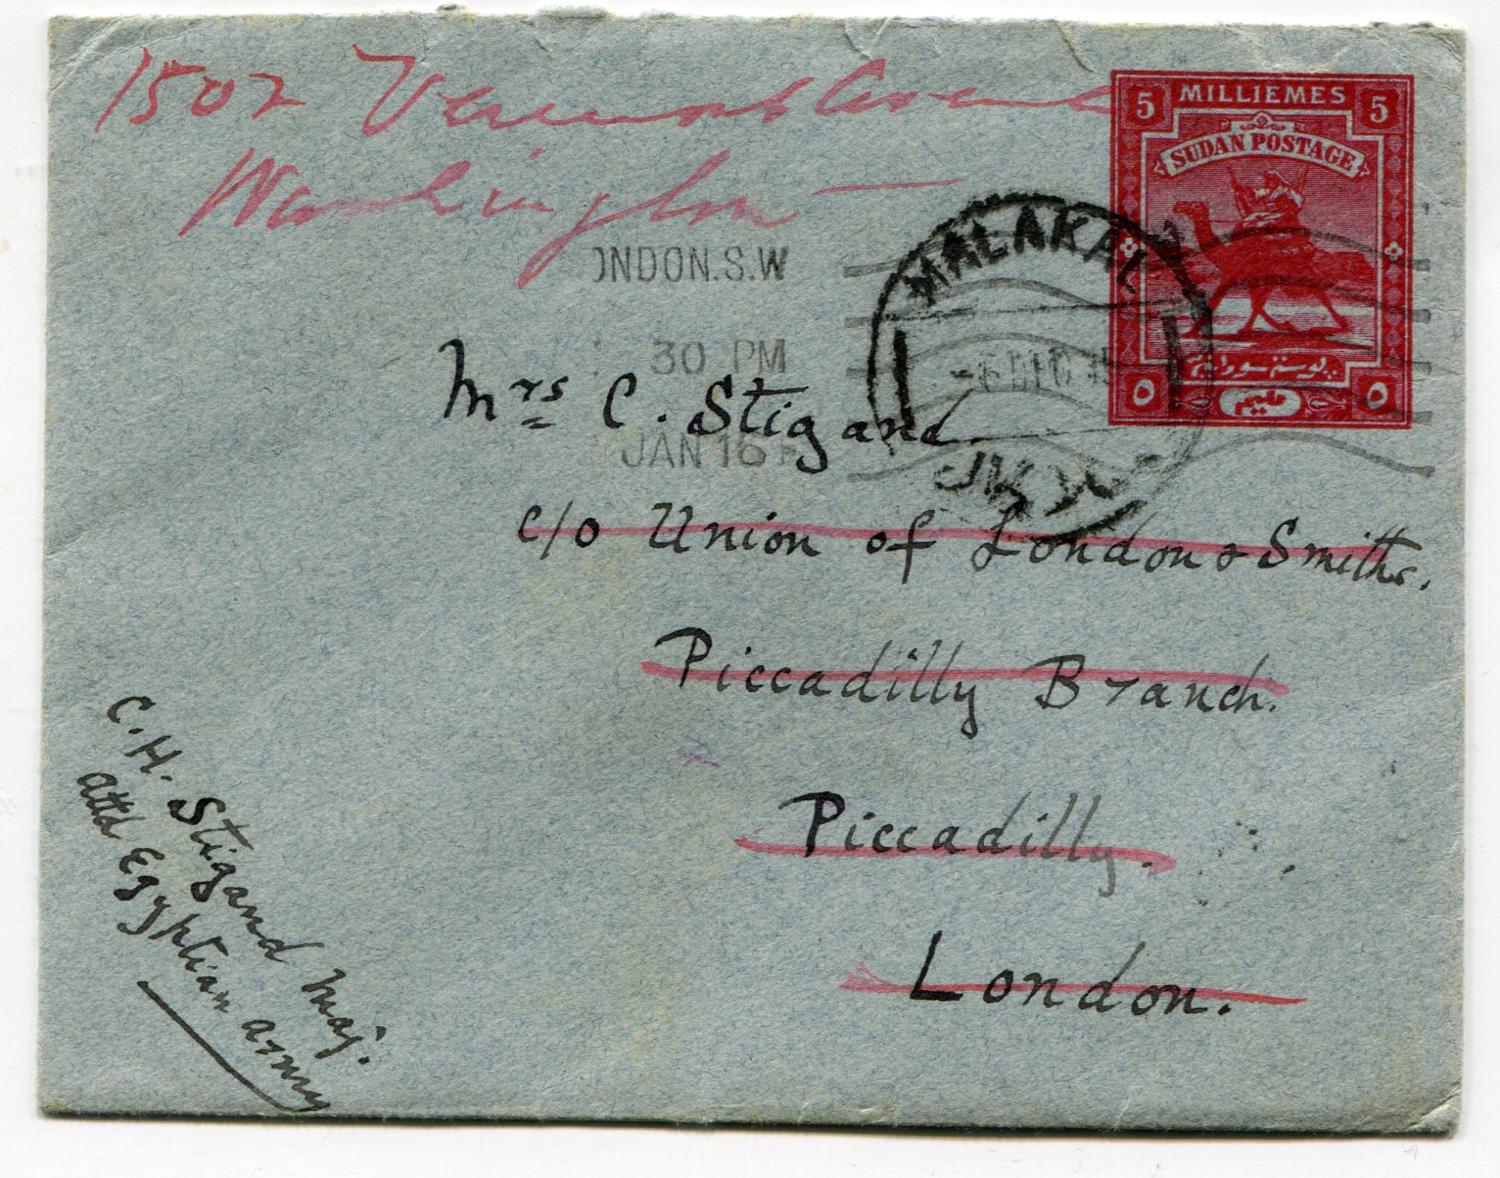 1502 Vermont Avenue
Washington
5 MILLIEMES 5
SUDAN POSTAGE
بوستة سودانية
٥ مليم ٥
MALAKAL
ملكال
ONDON.S.W
30 PM
JAN 16
Mrs C. Stigand.
c/o Union of London & Smiths.
Piccadilly Branch.
Piccadilly.
London.
C.H. Stigand Maj.
attd Egyptian army